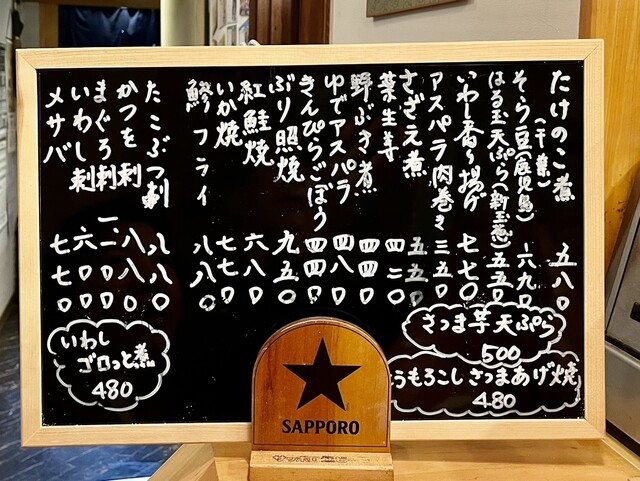 たけのこ煮(千葉) 五八〇
そら豆(鹿児島) 六九〇
はる玉天ぷら(新玉葱) 五五〇
いわし香り揚げ 七七〇
アスパラ肉巻き 三五〇
さざえ煮 五五〇
葉生姜 四二〇
野ぶき煮 四四〇
ゆでアスパラ 四八〇
きんぴらごぼう 四四〇
ぶり照焼 九五〇
紅鮭焼 六八〇
いか焼 七七〇
鯵フライ 八八〇
たこぶつ刺 八八〇
かつを刺 八八〇
まぐろ刺 一二〇〇
いわし刺 六六〇
メサバ 七七〇
さつま芋天ぷら
500
うもろこしさつまあげ焼
480
いわし
ゴロっと煮
480
SAPPORO